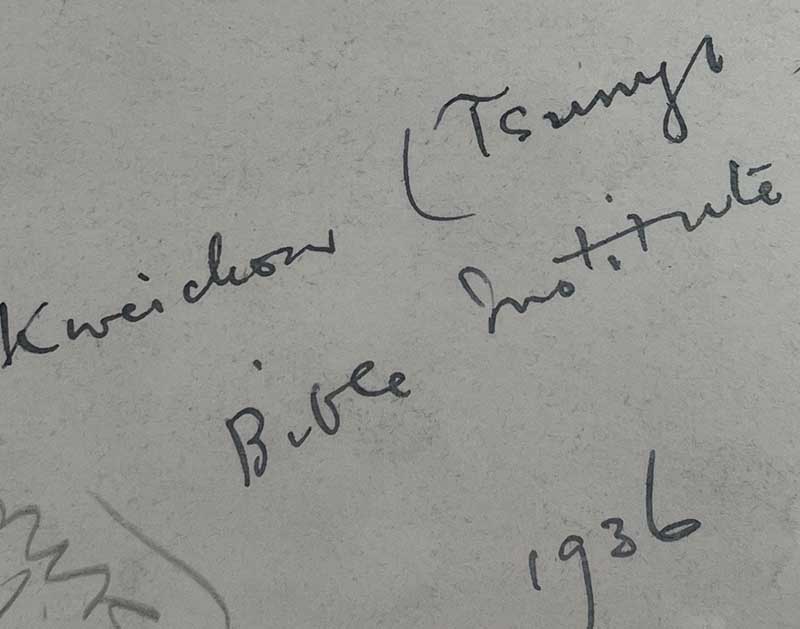 Kweichow (Tsunyi
Bible Institute
1936